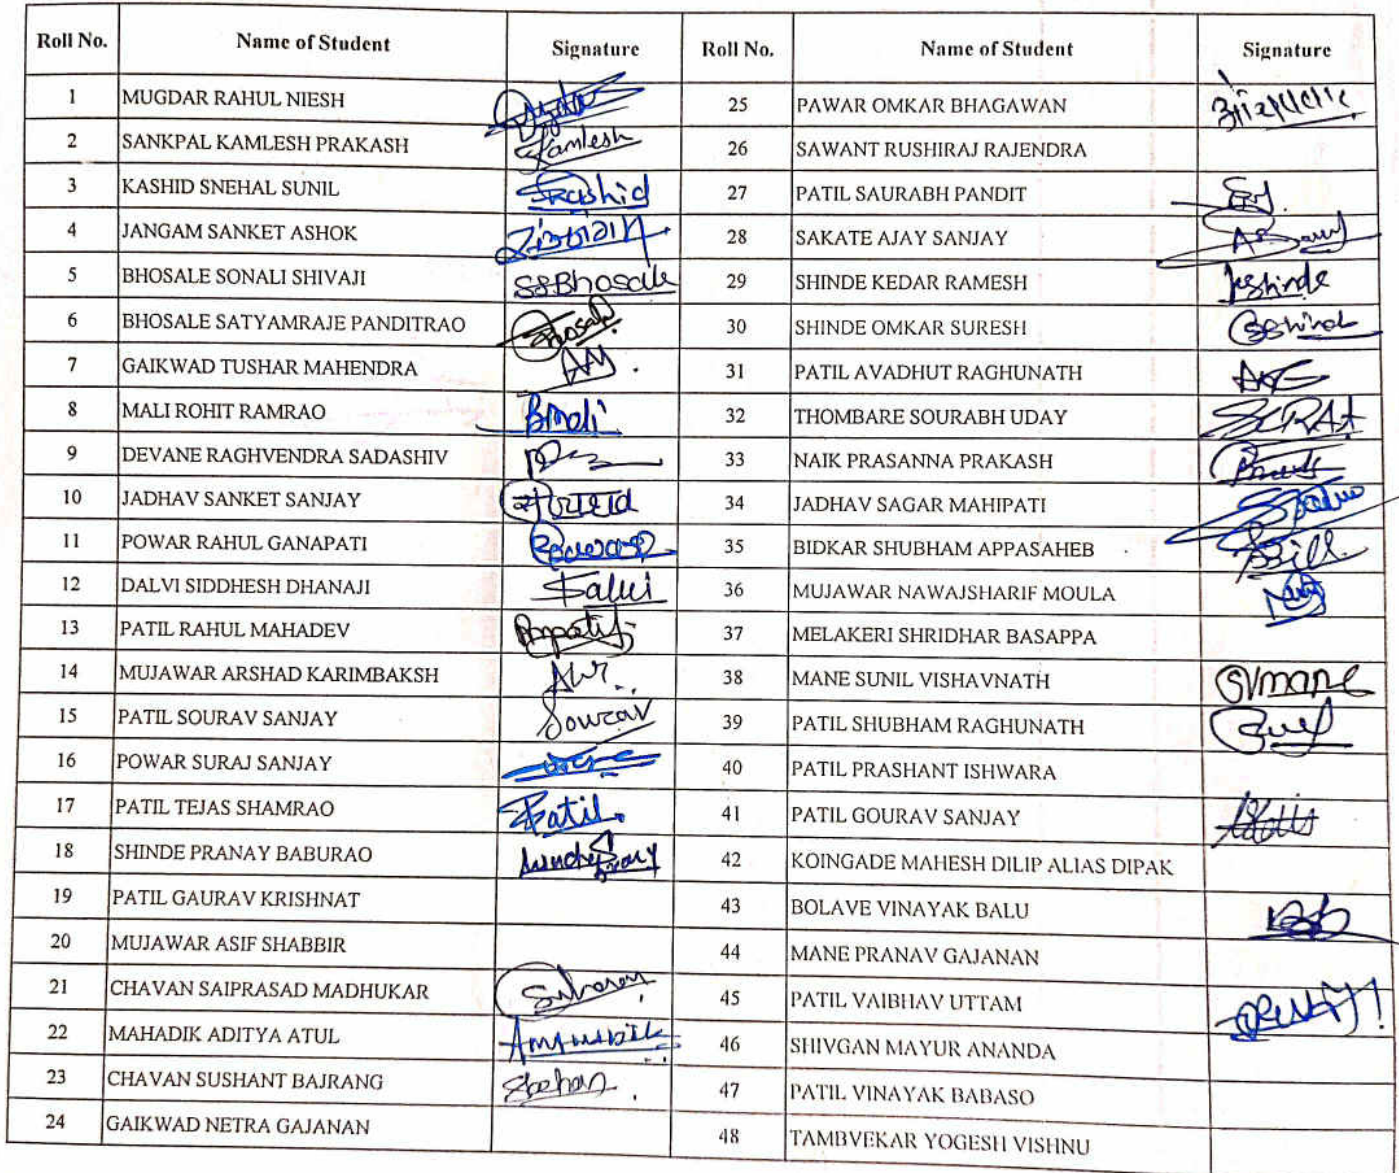 Roll No. Name of Student Signature Roll No. Name of Student Signature
1 MUGDAR RAHUL NIESH 25 PAWAR OMKAR BHAGAWAN
2 SANKPAL KAMLESH PRAKASH Kamlesh 26 SAWANT RUSHIRAJ RAJENDRA
3 KASHID SNEHAL SUNIL SKashid 27 PATIL SAURABH PANDIT
4 JANGAM SANKET ASHOK 28 SAKATE AJAY SANJAY
5 BHOSALE SONALI SHIVAJI SSBhosale 29 SHINDE KEDAR RAMESH kshinde
6 BHOSALE SATYAMRAJE PANDITRAO Bhosale 30 SHINDE OMKAR SURESH
7 GAIKWAD TUSHAR MAHENDRA 31 PATIL AVADHUT RAGHUNATH
8 MALI ROHIT RAMRAO 32 THOMBARE SOURABH UDAY
9 DEVANE RAGHVENDRA SADASHIV 33 NAIK PRASANNA PRAKASH
10 JADHAV SANKET SANJAY 34 JADHAV SAGAR MAHIPATI
11 POWAR RAHUL GANAPATI 35 BIDKAR SHUBHAM APPASAHEB
12 DALVI SIDDHESH DHANAJI Dalvi 36 MUJAWAR NAWAJSHARIF MOULA
13 PATIL RAHUL MAHADEV 37 MELAKERI SHRIDHAR BASAPPA
14 MUJAWAR ARSHAD KARIMBAKSH 38 MANE SUNIL VISHAVNATH SVmane
15 PATIL SOURAV SANJAY Sourav 39 PATIL SHUBHAM RAGHUNATH
16 POWAR SURAJ SANJAY 40 PATIL PRASHANT ISHWARA
17 PATIL TEJAS SHAMRAO Patil 41 PATIL GOURAV SANJAY
18 SHINDE PRANAY BABURAO 42 KOINGADE MAHESH DILIP ALIAS DIPAK
19 PATIL GAURAV KRISHNAT 43 BOLAVE VINAYAK BALU
20 MUJAWAR ASIF SHABBIR 44 MANE PRANAV GAJANAN
21 CHAVAN SAIPRASAD MADHUKAR 45 PATIL VAIBHAV UTTAM
22 MAHADIK ADITYA ATUL 46 SHIVGAN MAYUR ANANDA
23 CHAVAN SUSHANT BAJRANG 47 PATIL VINAYAK BABASO
24 GAIKWAD NETRA GAJANAN 48 TAMBVEKAR YOGESH VISHNU